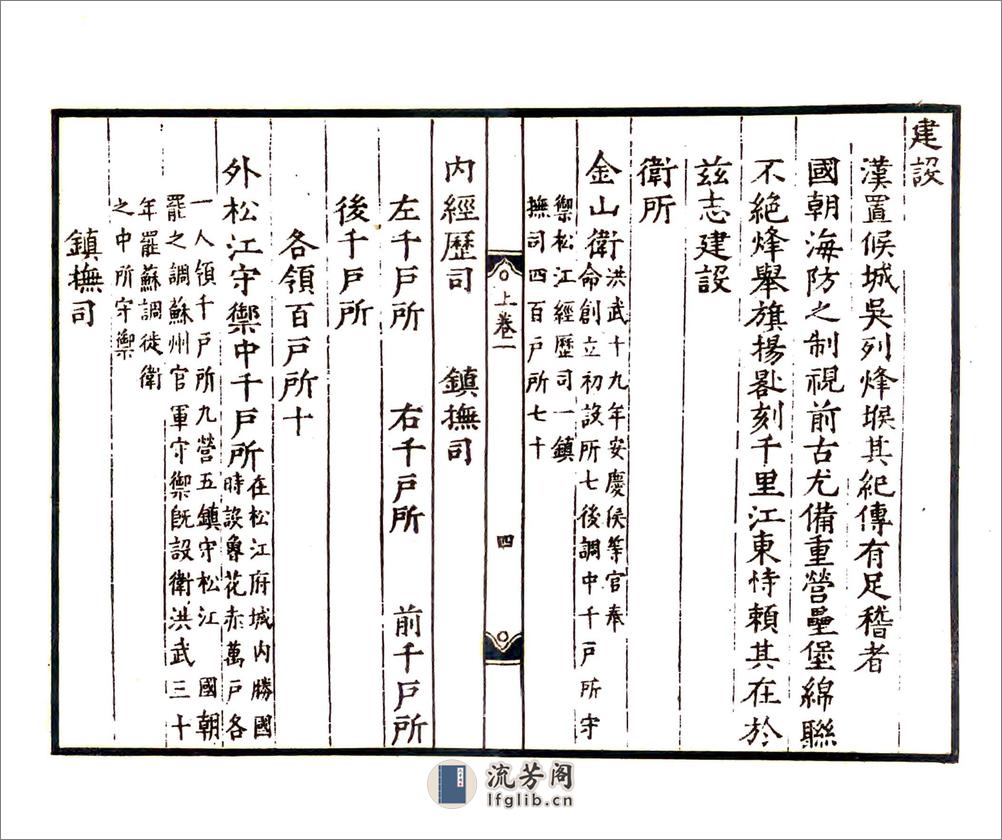 建設
漢置候城吳列烽堠其紀傳有足稽者
國朝海防之制視前古尤備重營壘堡綿聯
不絕烽舉旗揚晷刻千里江東恃賴其在於
茲志建設
衛所
金山衛洪武十九年安慶侯等官奉
命創立初設所七後調中千戶所守
禦松江經歷司一鎮
撫司四百戶所七十
上卷一
四
內經歷司 鎮撫司
左千戶所 右千戶所 前千戶所
後千戶所
各領百戶所十
外松江守禦中千戶所在松江府城內勝國
時設魯花赤萬戶各
一人領千戶所九營五鎮守松江 國朝
罷之調蘇州官軍守禦既設衛洪武三十
年罷蘇調徙衛
之中所守禦
鎮撫司
流芳阁
lfglib.cn